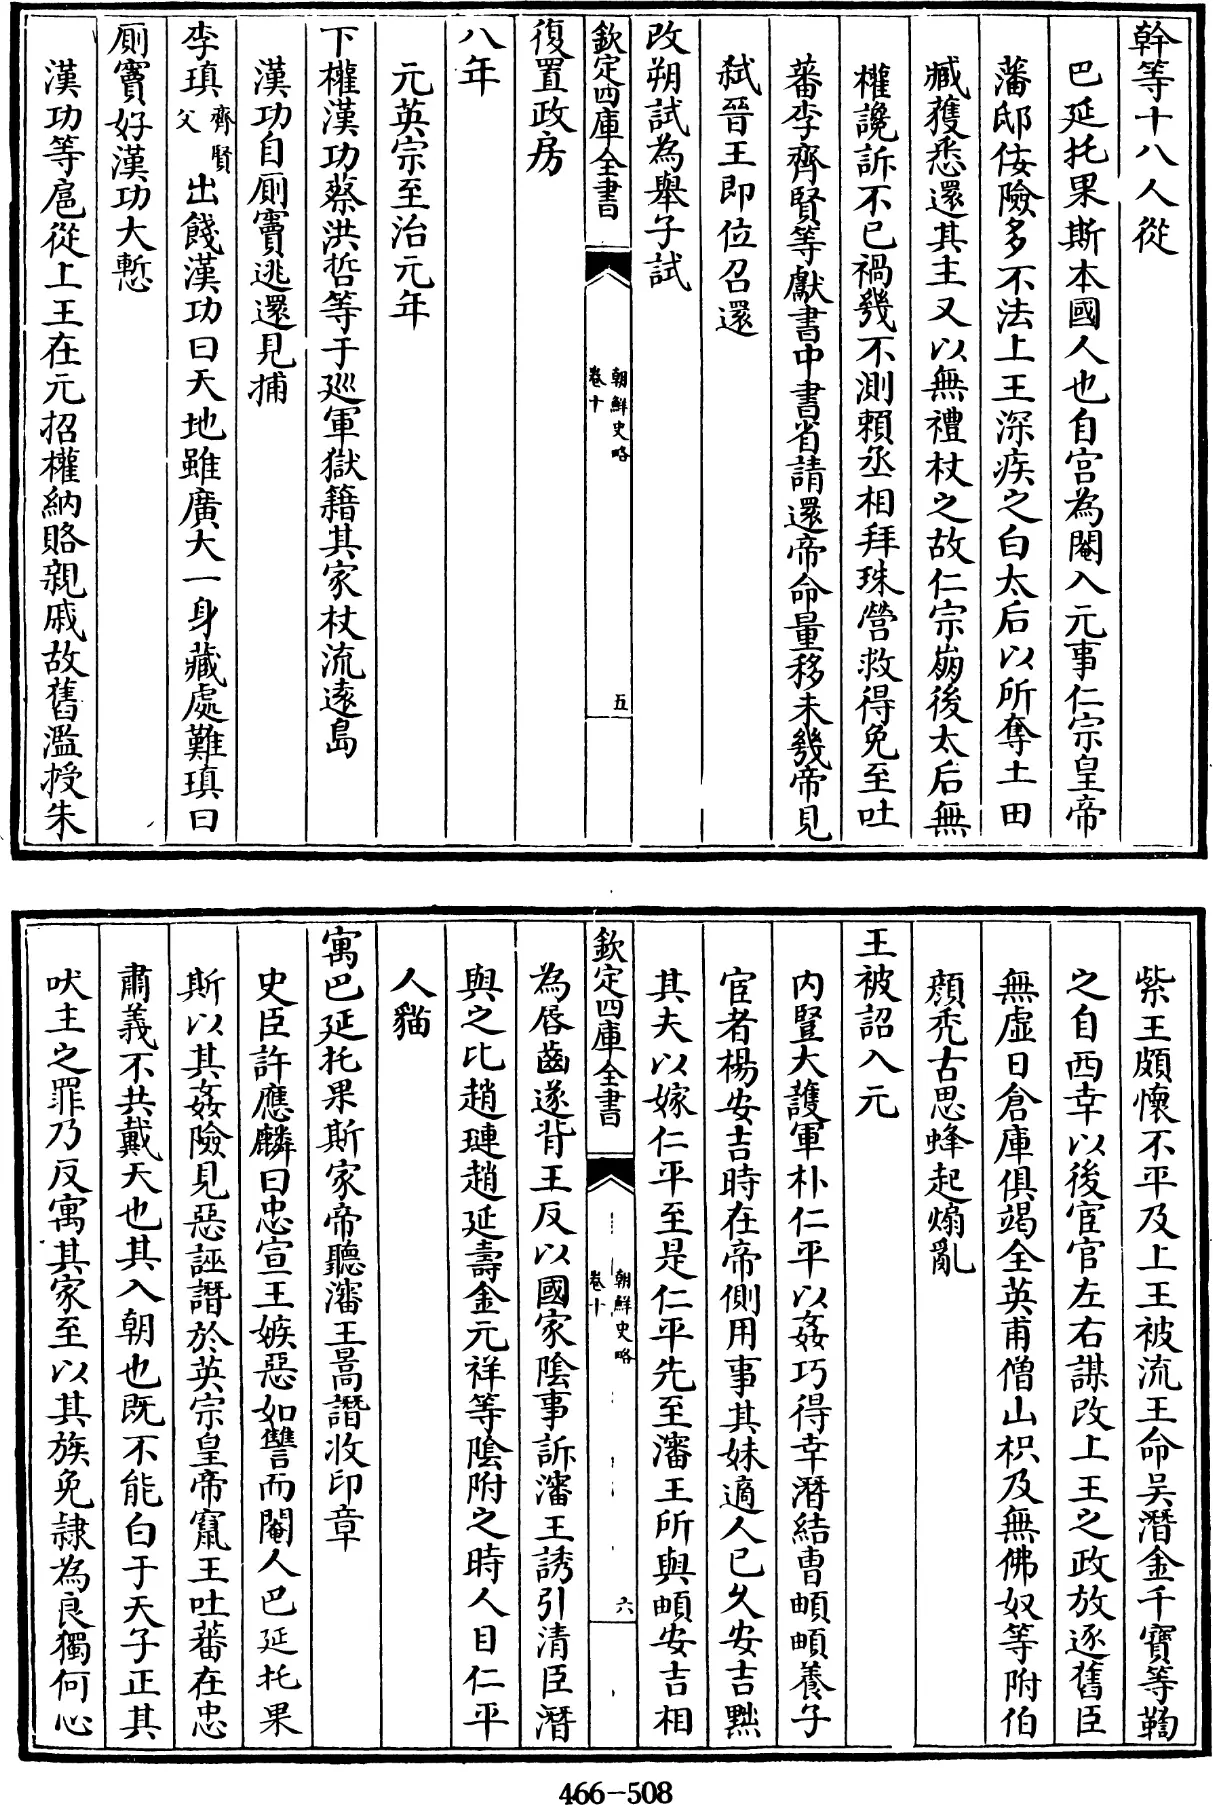 幹等十八人從
巴延托果斯本國人也自宮為閹入元事仁宗皇帝
藩邸佞險多不法上王深疾之白太后以所奪土田
臧獲悉還其主又以無禮杖之故仁宗崩後太后無
權讒訴不已禍幾不測賴丞相拜珠營救得免至吐
蕃李齊賢等獻書中書省請還帝命量移未幾帝見
弒晉王即位召還
改朔試為舉子試
欽定四庫全書
朝鮮史略
卷十
五
復置政房
八年
元英宗至治元年
下權漢功蔡洪哲等于巡軍獄籍其家杖流遠島
漢功自厠竇逃還見捕
李瑱齊賢父出餞漢功曰天地雖廣大一身藏處難瑱曰
厠竇好漢功大慙
漢功等扈從上王在元招權納賂親戚故舊濫授朱
紫王頗懷不平及上王被流王命吳潛金千寶等鞫
之自西幸以後宦官左右謀改上王之政放逐舊臣
無虛日倉庫俱竭全英甫僧山枳及無佛奴等附伯
顏禿古思蜂起煽亂
王被詔入元
内豎大護軍朴仁平以姦巧得幸潛結曺頔頔養子
宦者楊安吉時在帝側用事其妹適人已久安吉黜
其夫以嫁仁平至是仁平先至瀋王所與頔安吉相
欽定四庫全書
朝鮮史略
卷十
六
為唇齒遂背王反以國家陰事訴瀋王誘引清臣潛
與之比趙璉趙延壽金元祥等陰附之時人目仁平
人貓
寓巴延托果斯家帝聽瀋王暠譖收印章
史臣許應麟曰忠宣王嫉惡如讐而閹人巴延托果
斯以其姦險見惡誣譖於英宗皇帝竄王吐蕃在忠
肅義不共戴天也其入朝也既不能白于天子正其
吠主之罪乃反寓其家至以其族免隷為良獨何心
466-508